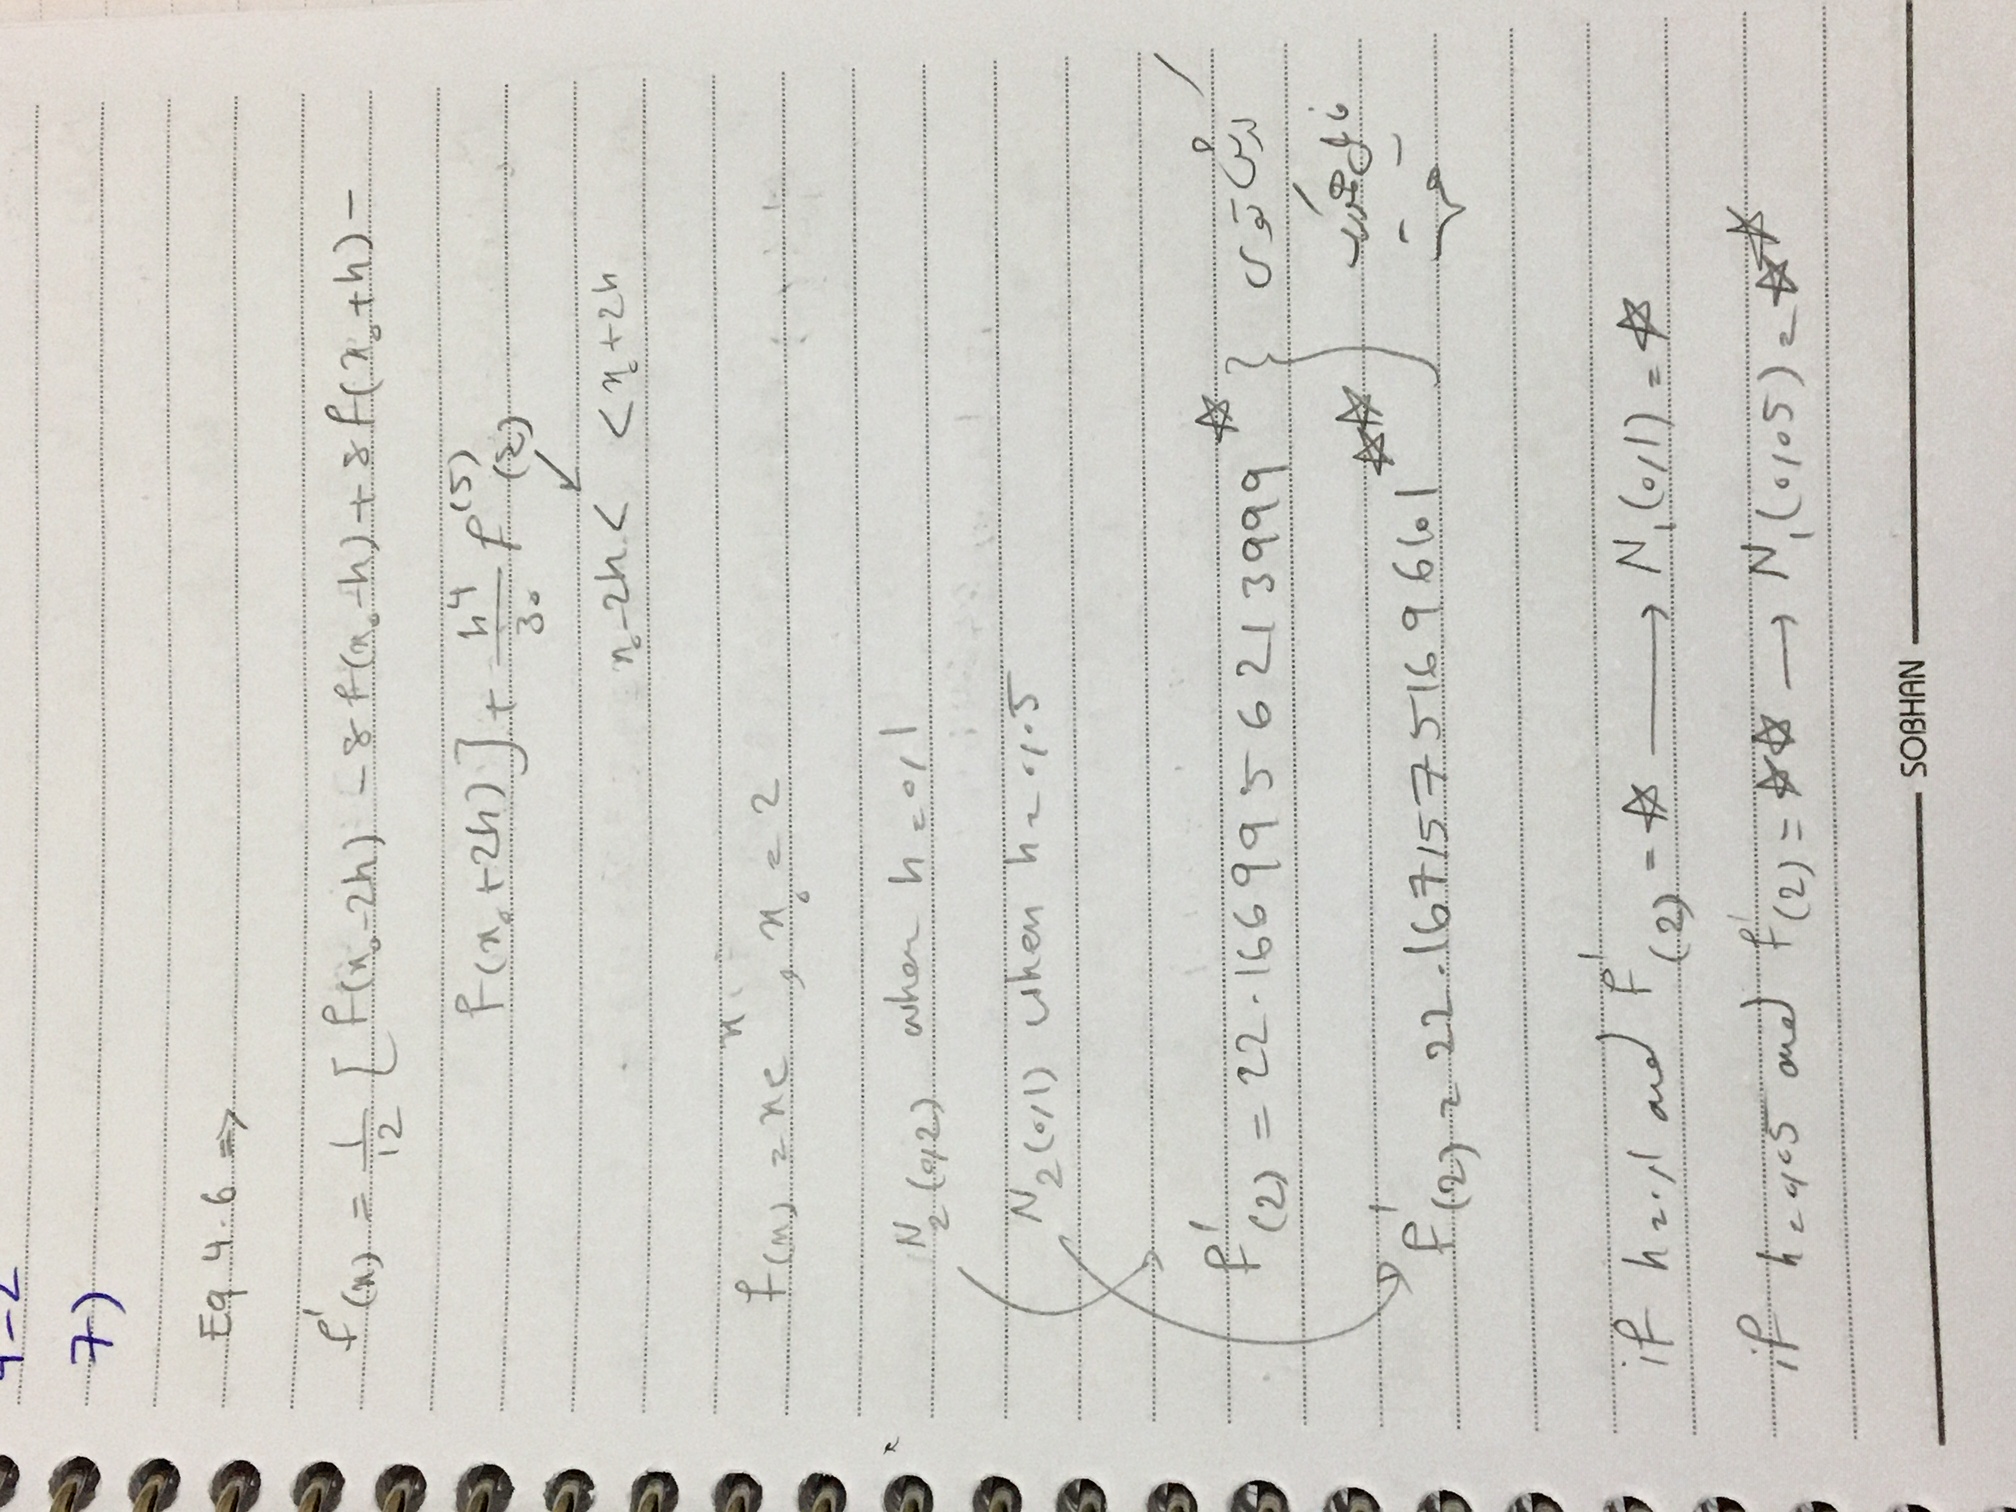 4-2
7)
Eq 4.6 =>
f'(x) = 1/12 [ f(x₀-2h) - 8f(x₀-h) + 8f(x₀+h) -
f(x₀+2h) ] + h⁴/30 f⁽⁵⁾(ξ)
x₀-2h < < x₀+2h
f(x) = xe^x , x₀ = 2
N₂(0,2) when h = 0,1
N₂(0,1) when h = 0,05
f'(2) = 22.1669956213999 ☆ } کدش توی
فایل همورک
f'(2) = 22.16715751696601 ☆☆
هست
if h = 0,1 and f'(2) = ☆ ⟶ N₁(0,1) = ☆
if h = 0,05 and f'(2) = ☆☆ → N₁(0,05) = ☆☆
SOBHAN